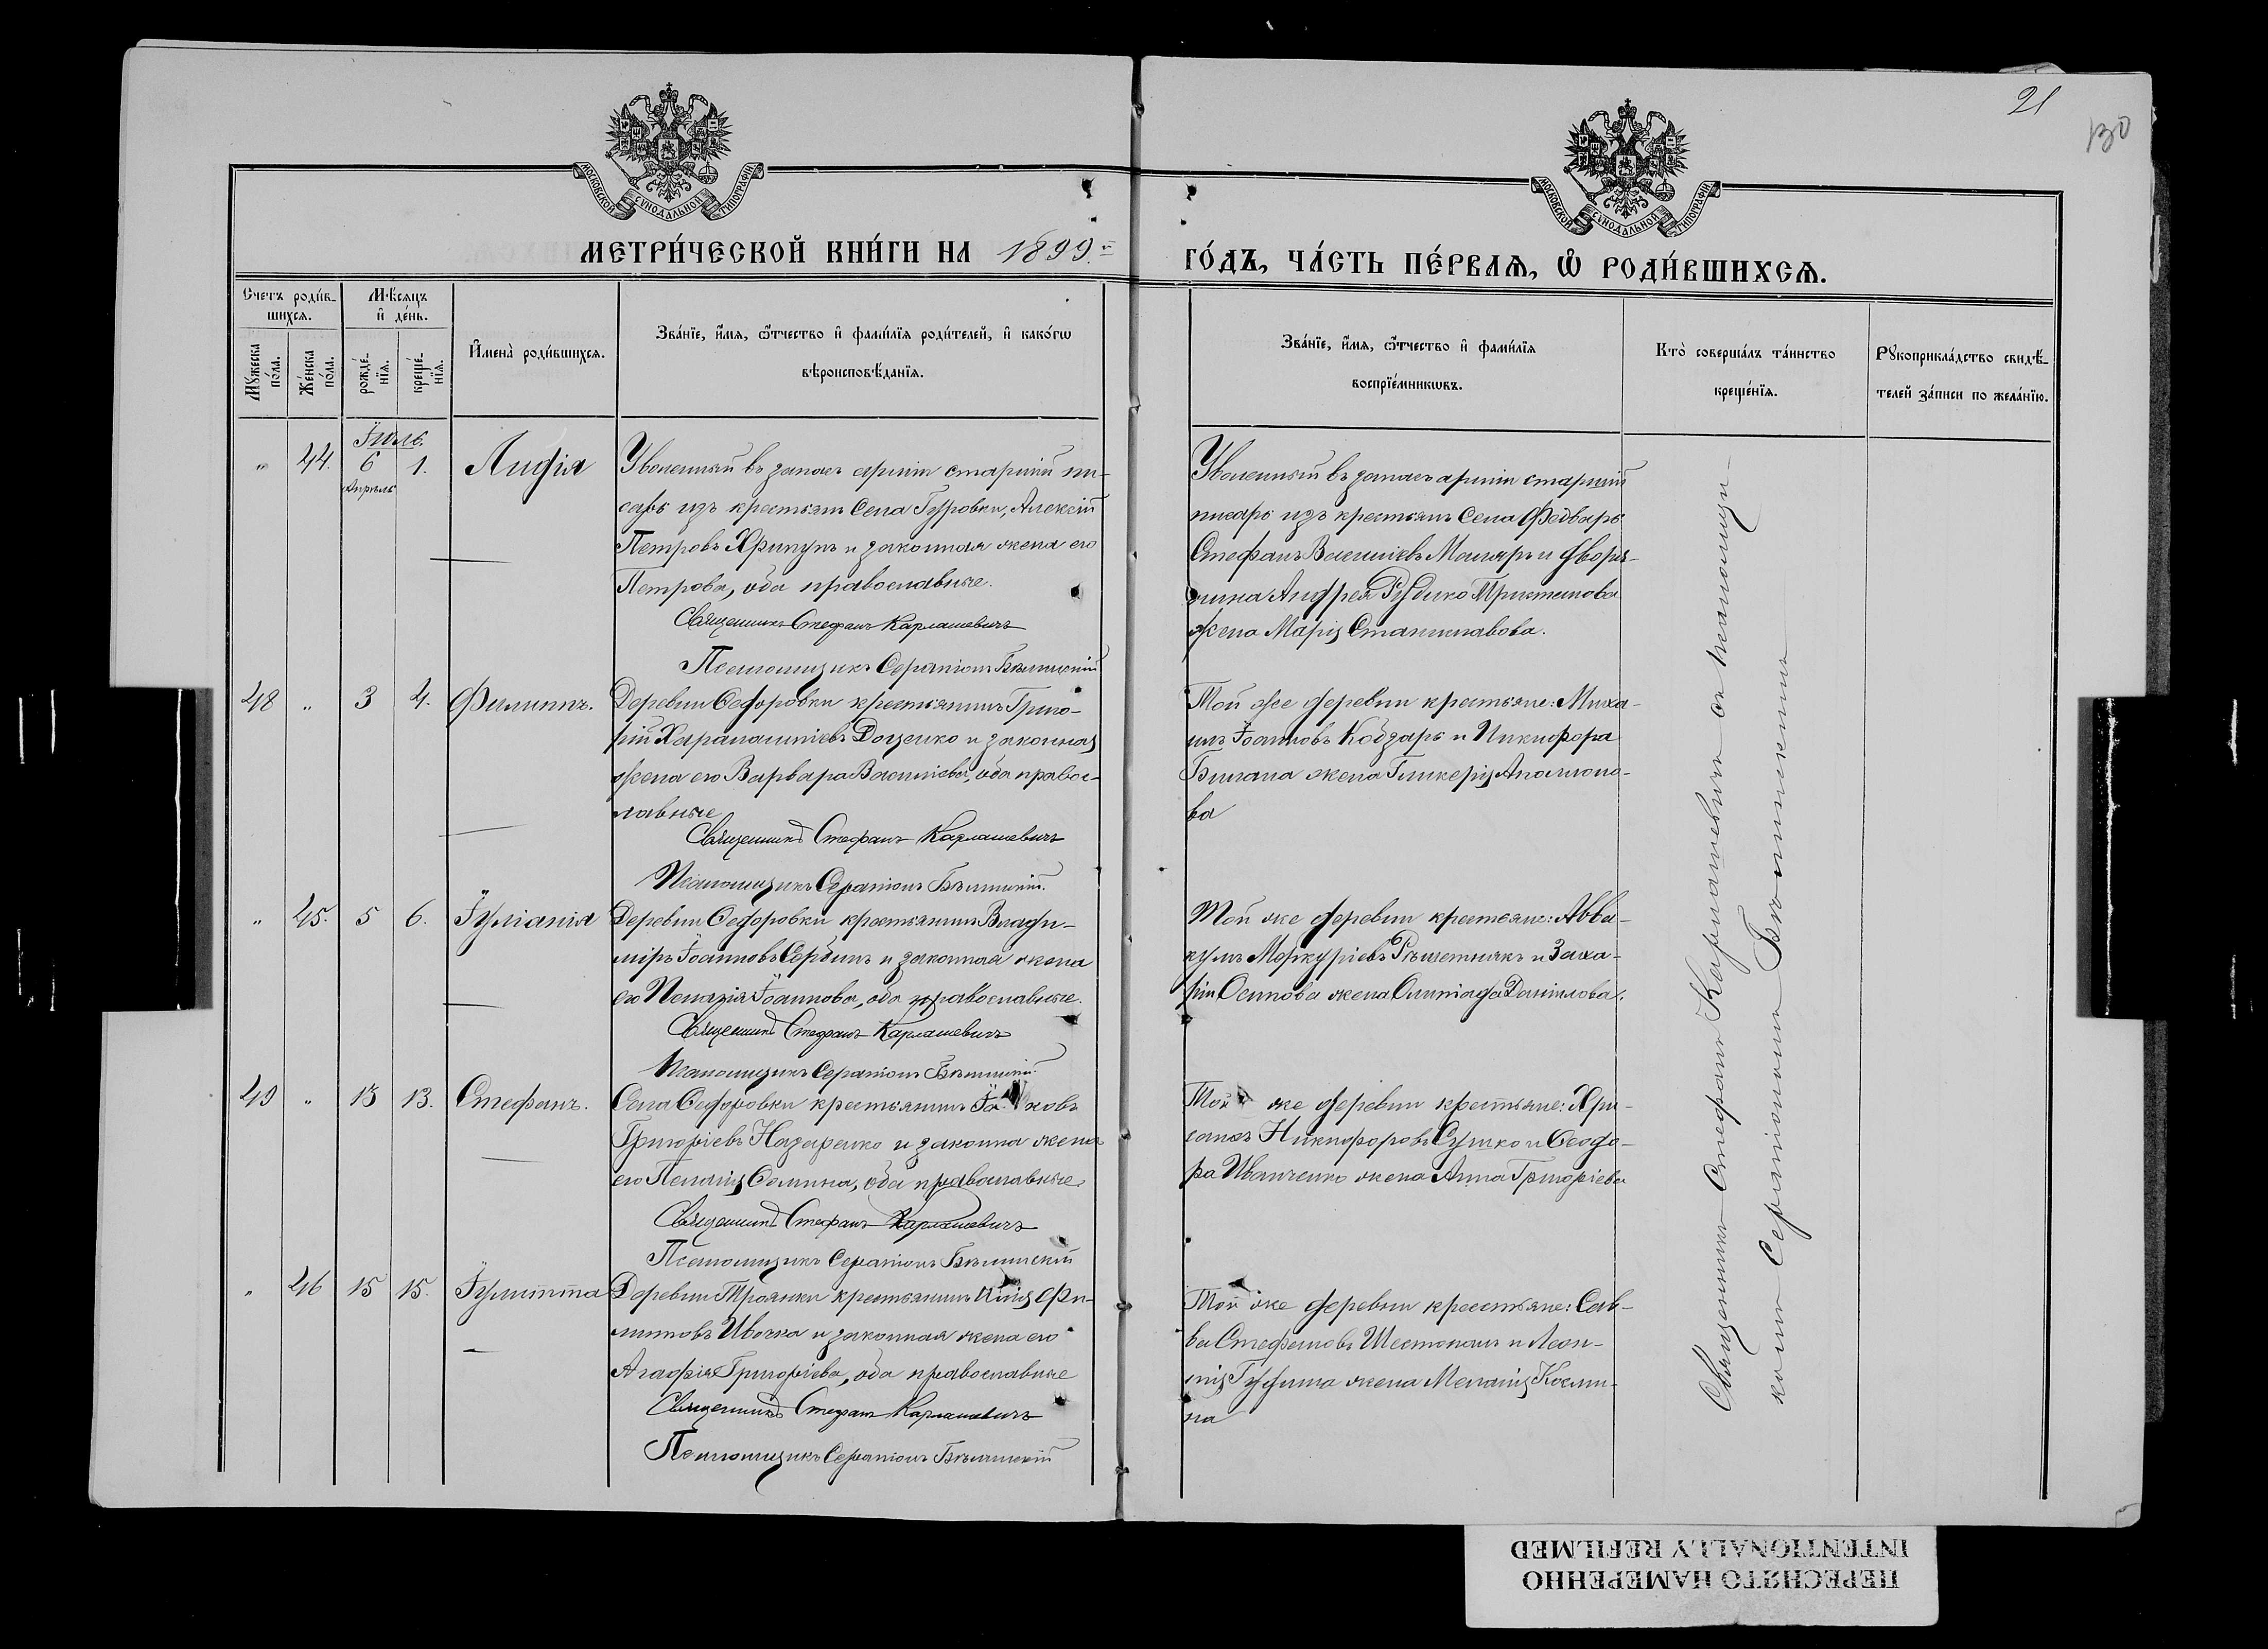 21
130
МОСКОВСКОЙ СѴНОДАЛЬНОЙ ТИПОГРАФІИ
МОСКОВСКОЙ СѴНОДАЛЬНОЙ ТИПОГРАФІИ
МЕТРИ́ЧЕСКОЙ КНИ́ГИ НА 1899.й
ГО́ДЪ, ЧА́СТЬ ПЕ́РВАѦ, Ѽ РОДИ́ВШИХСѦ.
Счетъ роди́вшихсѧ.
Мꙋжеска по́ла.
Же́нска по́ла.
Мѣ́сѧцъ и҆ де́нь.
рожде́нїѧ.
креще́нїѧ.
И҆мена̀ роди́вшихсѧ.
Зва́нїе, и҆́мѧ, ѻ҆́тчество и҆ фами́лїѧ роди́телей, и҆ како́гѡ
вѣроисповѣ́данїѧ.
Зва́нїе, и҆́мѧ, ѻ҆́тчество и҆ фами́лїѧ
воспрїе́мникѡвъ.
Кто̀ соверша́лъ та́инство
креще́нїѧ.
Рꙋкоприкла́дство свидѣ́-
телей за́писи по жела́нїю.
Іюль.
„ 44. 6 1. Лидія
Апрѣль
Уволенный въ запасъ арміи старшій пи-
сарь изъ крестьянъ села Гуровки, Алексій
Петровъ Хрипунъ и законная жена его
Петрова, оба православные.
Священникъ Стефанъ Карлашевичъ
Псаломщикъ Серапіонъ Бѣлинскій
Уволенный въ запасъ арміи старшій
писарь изъ крестьянъ села Федваръ
Стефанъ Василіевъ Маляръ и дворя-
нина Андрея Рудико
жена Марія Станиславова.
48 „ 3 4. Филиппъ.
Деревни Федоровки крестьянинъ Григо-
рій Харалампіевъ Доценко и законная
жена его Варвара Василіева, оба правос-
лавные
Священникъ Стефанъ Карлашевичъ
Псаломщикъ Серапіонъ Бѣлинскій.
Той же деревни крестьяне: Миха-
илъ Іоанновъ Кобзарь и Никифора
жена Гликерія Аполлоно-
ва
„ 45. 5 6. Іуліанія
Деревни Федоровки крестьянинъ Влади-
міръ Іоанновъ Сербинъ и законная жена
его Пелагія Іоаннова, оба православные.
Священникъ Стефанъ Карлашевичъ
Псаломщикъ Серапіонъ Бѣлинскій
Той же деревни крестьяне: Авва-
кумъ Меркуріевъ Рѣшетнякъ и Заха-
рія Осипова жена Олимпіада Даніилова.
49 „ 13 13. Стефанъ.
Села Федоровки крестьянинъ Іаковъ
Григоріевъ Назаренко и законна жена
его Пелагія Сомина, оба православные.
Священникъ Стефанъ Карлашевичъ
Псаломщикъ Серапіонъ Бѣлинскій
Той же деревни крестьяне: Хри-
санфъ Никифоровъ Сушко и Феодо-
ра Иванченко жена Анна Григоріева
„ 46 15 15. Іулитта
Деревни Троянки крестьянинъ Илія Фи-
липповъ Ивочка и законная жена его
Агафія Григоріева, оба православные
Священникъ Стефанъ Карлашевичъ
Псаломщикъ Серапіонъ Бѣлинскій
Той же деревни крестьяне: Сав-
ва Стефановъ Шестопалъ и Леон-
тія жена Меланія Косми-
на
Священникъ Стефанъ Карлашевичъ съ псаломщи-
комъ Серапіономъ Бѣлинскимъ
ПЕРЕСНЯТО НАМЕРЕННО
INTENTIONALLY REFILMED